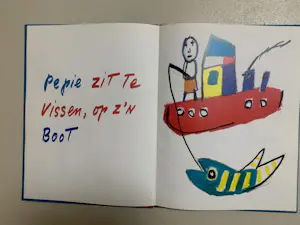 Pepie ziT Te
Vissen, op z'n
BooT